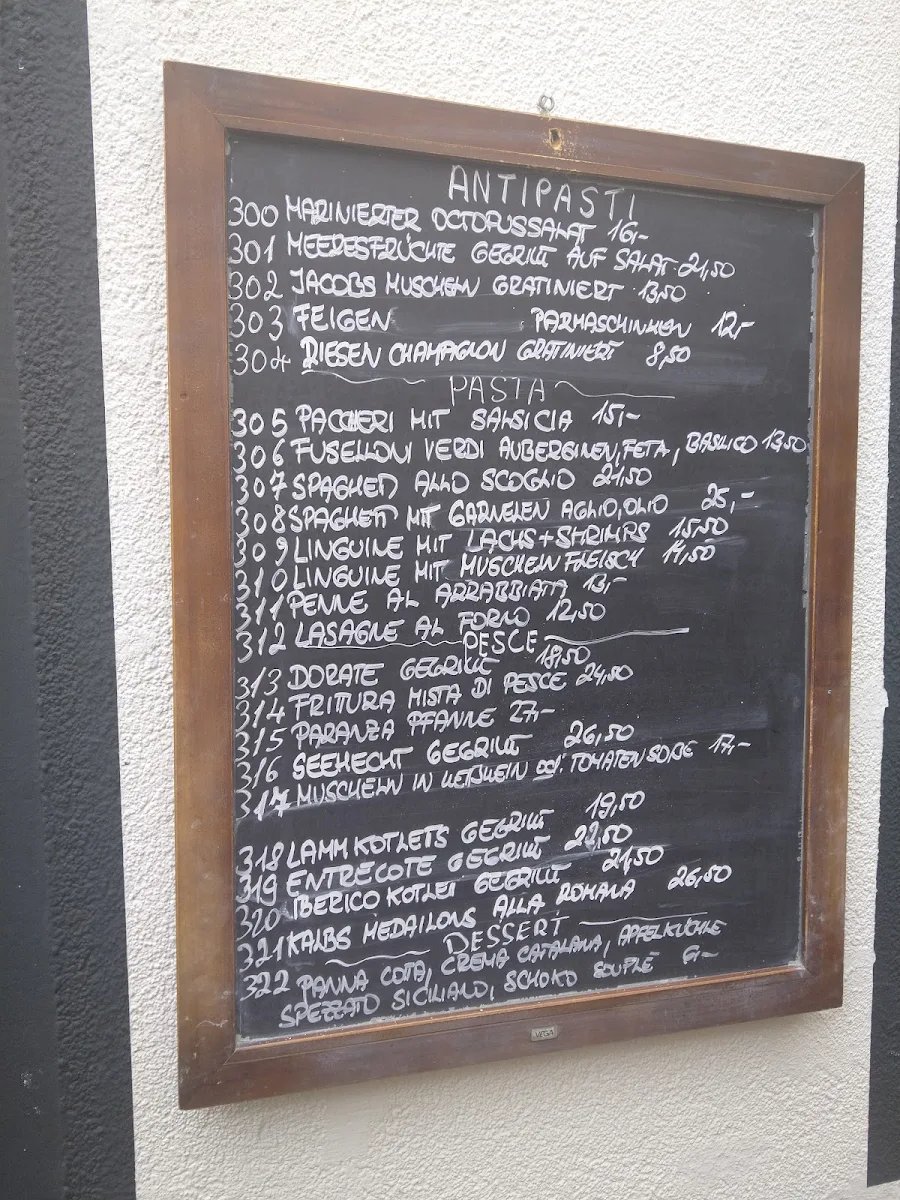 ANTIPASTI
300 MARINIERTER OCTOPUSSALAT 16,-
301 MEERESFRÜCHTE GEGRILLT AUF SALAT 21,50
302 JACOBS MUSCHELN GRATINIERT 13,50
303 FEIGEN PARMASCHINKEN 12,-
304 RIESEN CHAMPAGNON GRATINIERT 8,50
PASTA
305 PACCHERI MIT SALSICIA 15,-
306 FUSELLONI VERDI AUBERGINEN, FETA, BASILICO 13,50
307 SPAGHETTI ALLO SCOGLIO 21,50
308 SPAGHETTI MIT GARNELEN AGLIO, OLIO 25,-
309 LINGUINE MIT LACHS + SHRIMPS 15,50
310 LINGUINE MIT MUSCHELN FLEISCH 14,50
311 PENNE AL ARRABBIATA 13,-
312 LASAGNE AL FORNO 12,50
PESCE
313 DORATE GEGRILLT 18,50
314 FRITTURA MISTA DI PESCE 24,50
315 PARANZA PFANNE 27,-
316 SEEHECHT GEGRILLT 26,50
317 MUSCHELN IN WEIßWEIN od. TOMATENSOßE 17,-
318 LAMMKOTLETS GEGRILLT 19,50
319 ENTRECOTE GEGRILLT 22,50
320 IBERICO KOTLET GEGRILLT 21,50
321 KALBS MEDAILONS ALLA ROMANA 26,50
DESSERT
322 PANNA COTA, CREMA CATALANA, APFELKÜCHLE
SPEZZATO SICILIANO, SCHOKO SOUFLÉ 6,-
VEGA